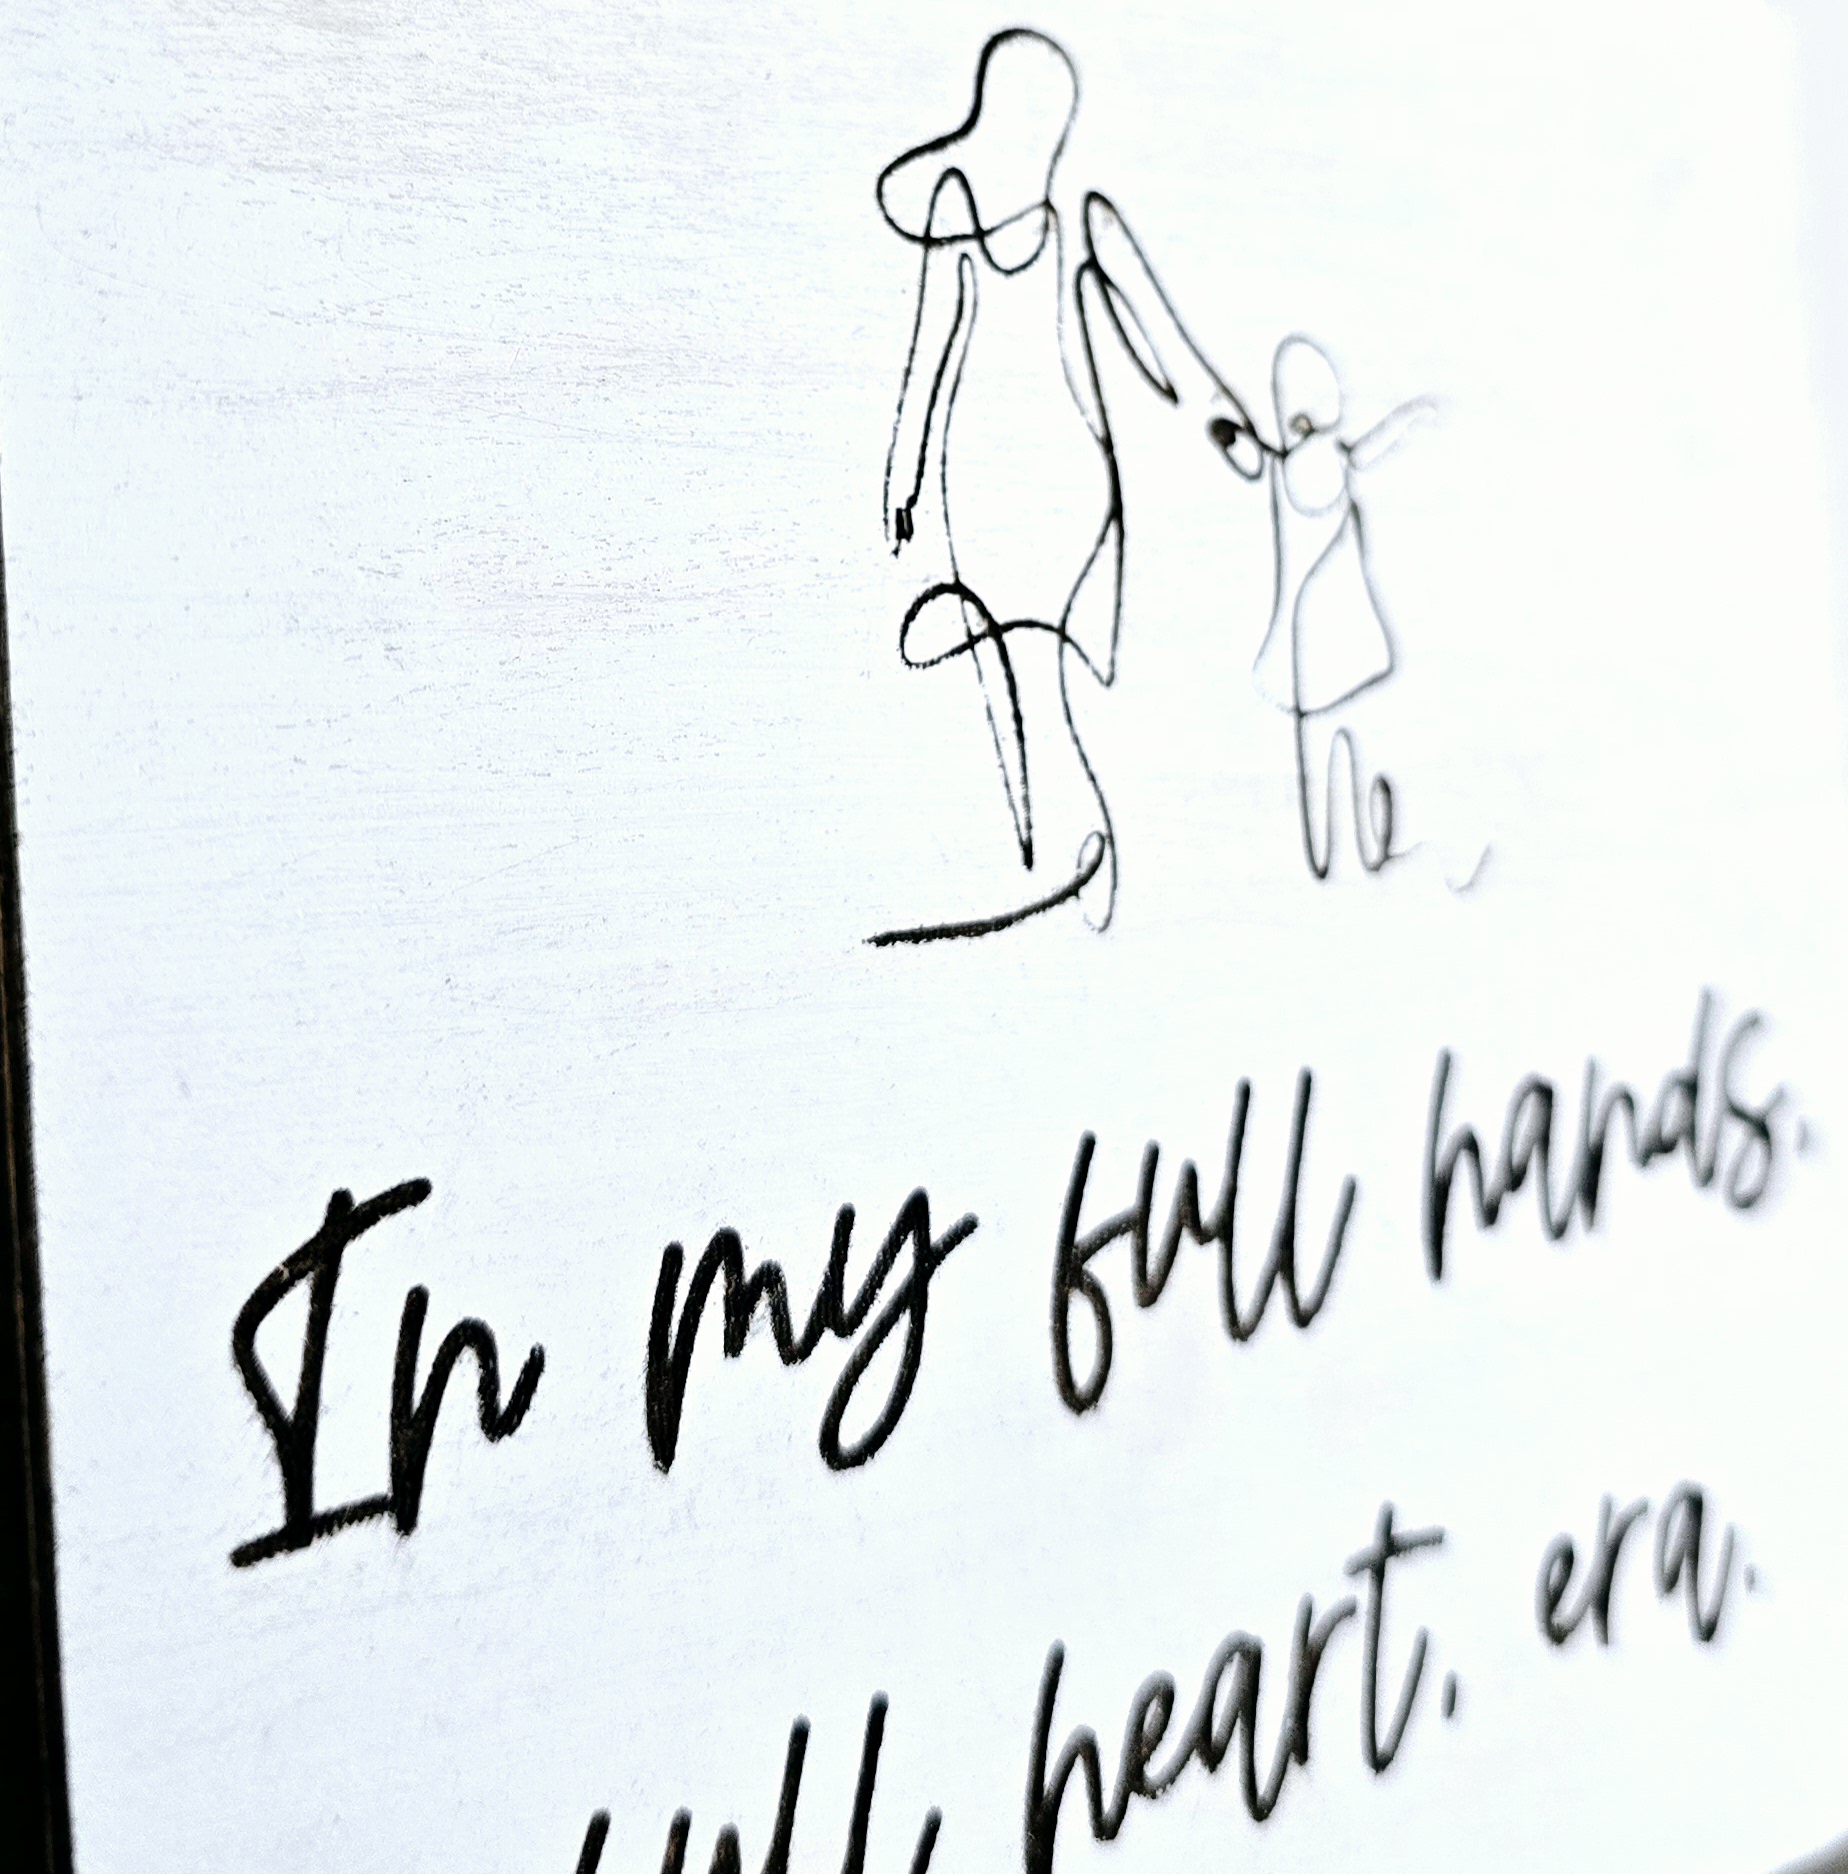 In my full hands.
full heart. era.